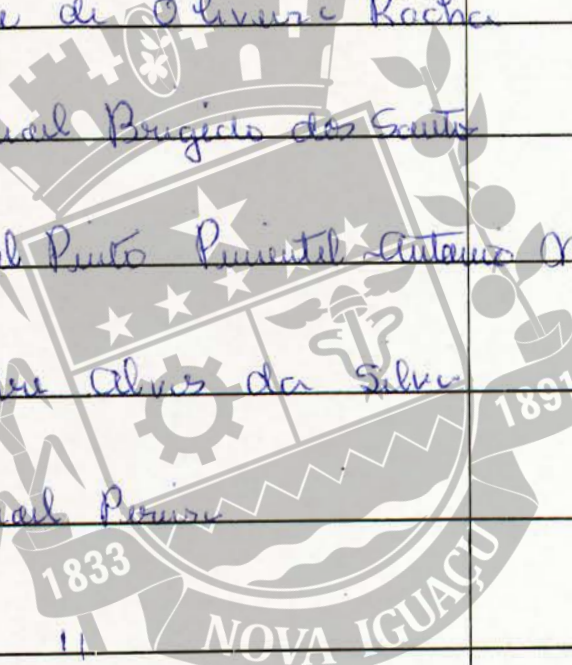 de Oliveira Rocha
Brigido dos Santos
Pinto Pimentel Antonio
Alves da Silva
Pereira
1891
1833
"
NOVA IGUAÇU